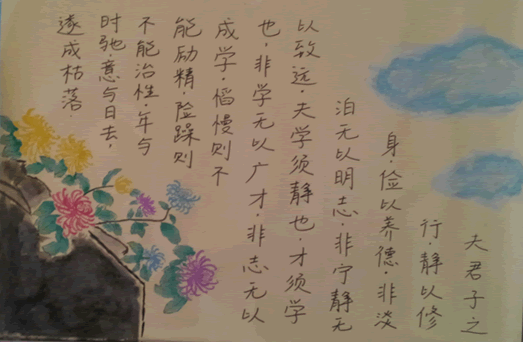 夫君子之
行.静以修
身.俭以养德.非淡
泊无以明志.非宁静无
以致远.夫学须静也.才须学
也.非学无以广才.非志无以
成学.慆慢则不
能励精.险躁则
不能治性.年与
时驰.意与日去.
遂成枯落.